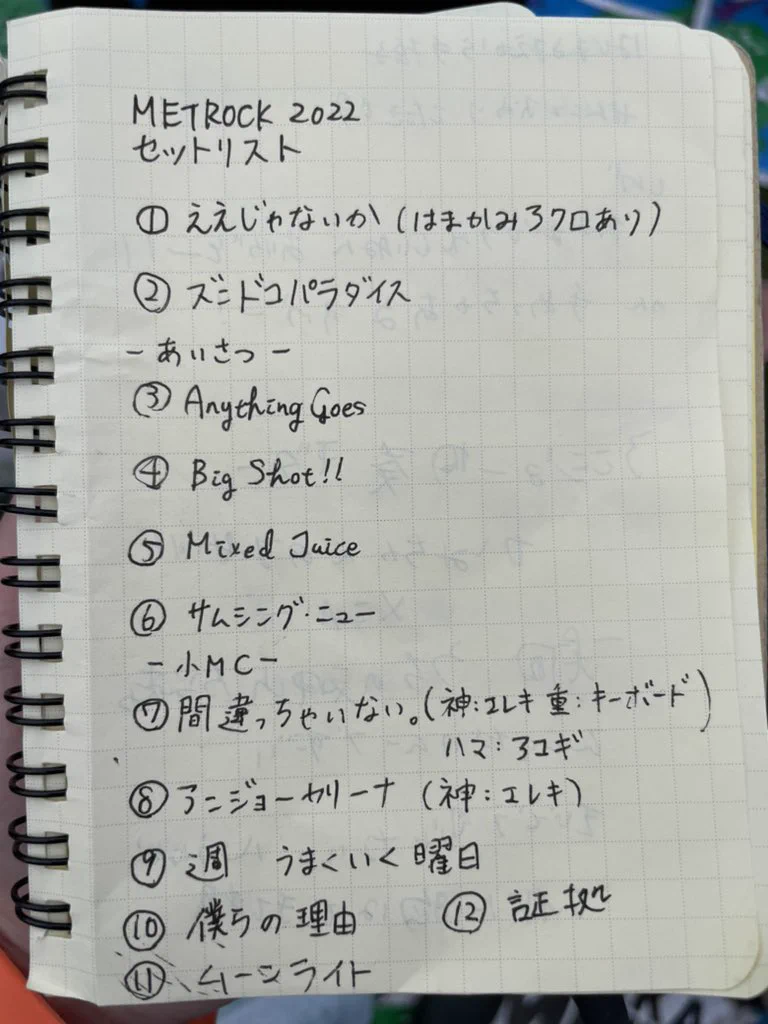 METROCK 2022
セットリスト
① ええじゃないか（はまかみアクロあり）
② ズンドコパラダイス
－あいさつ－
③ Anything Goes
④ Big Shot!!
⑤ Mixed Juice
⑥ サムシング・ニュー
－小MC－
⑦ 間違っちゃいない。（神：エレキ 重：キーボード）
ハマ：アコギ
⑧ アンジョーカリーナ （神：エレキ）
⑨ 週 うまくいく曜日
⑩ 僕らの理由
⑪ ムーンライト
⑫ 証拠